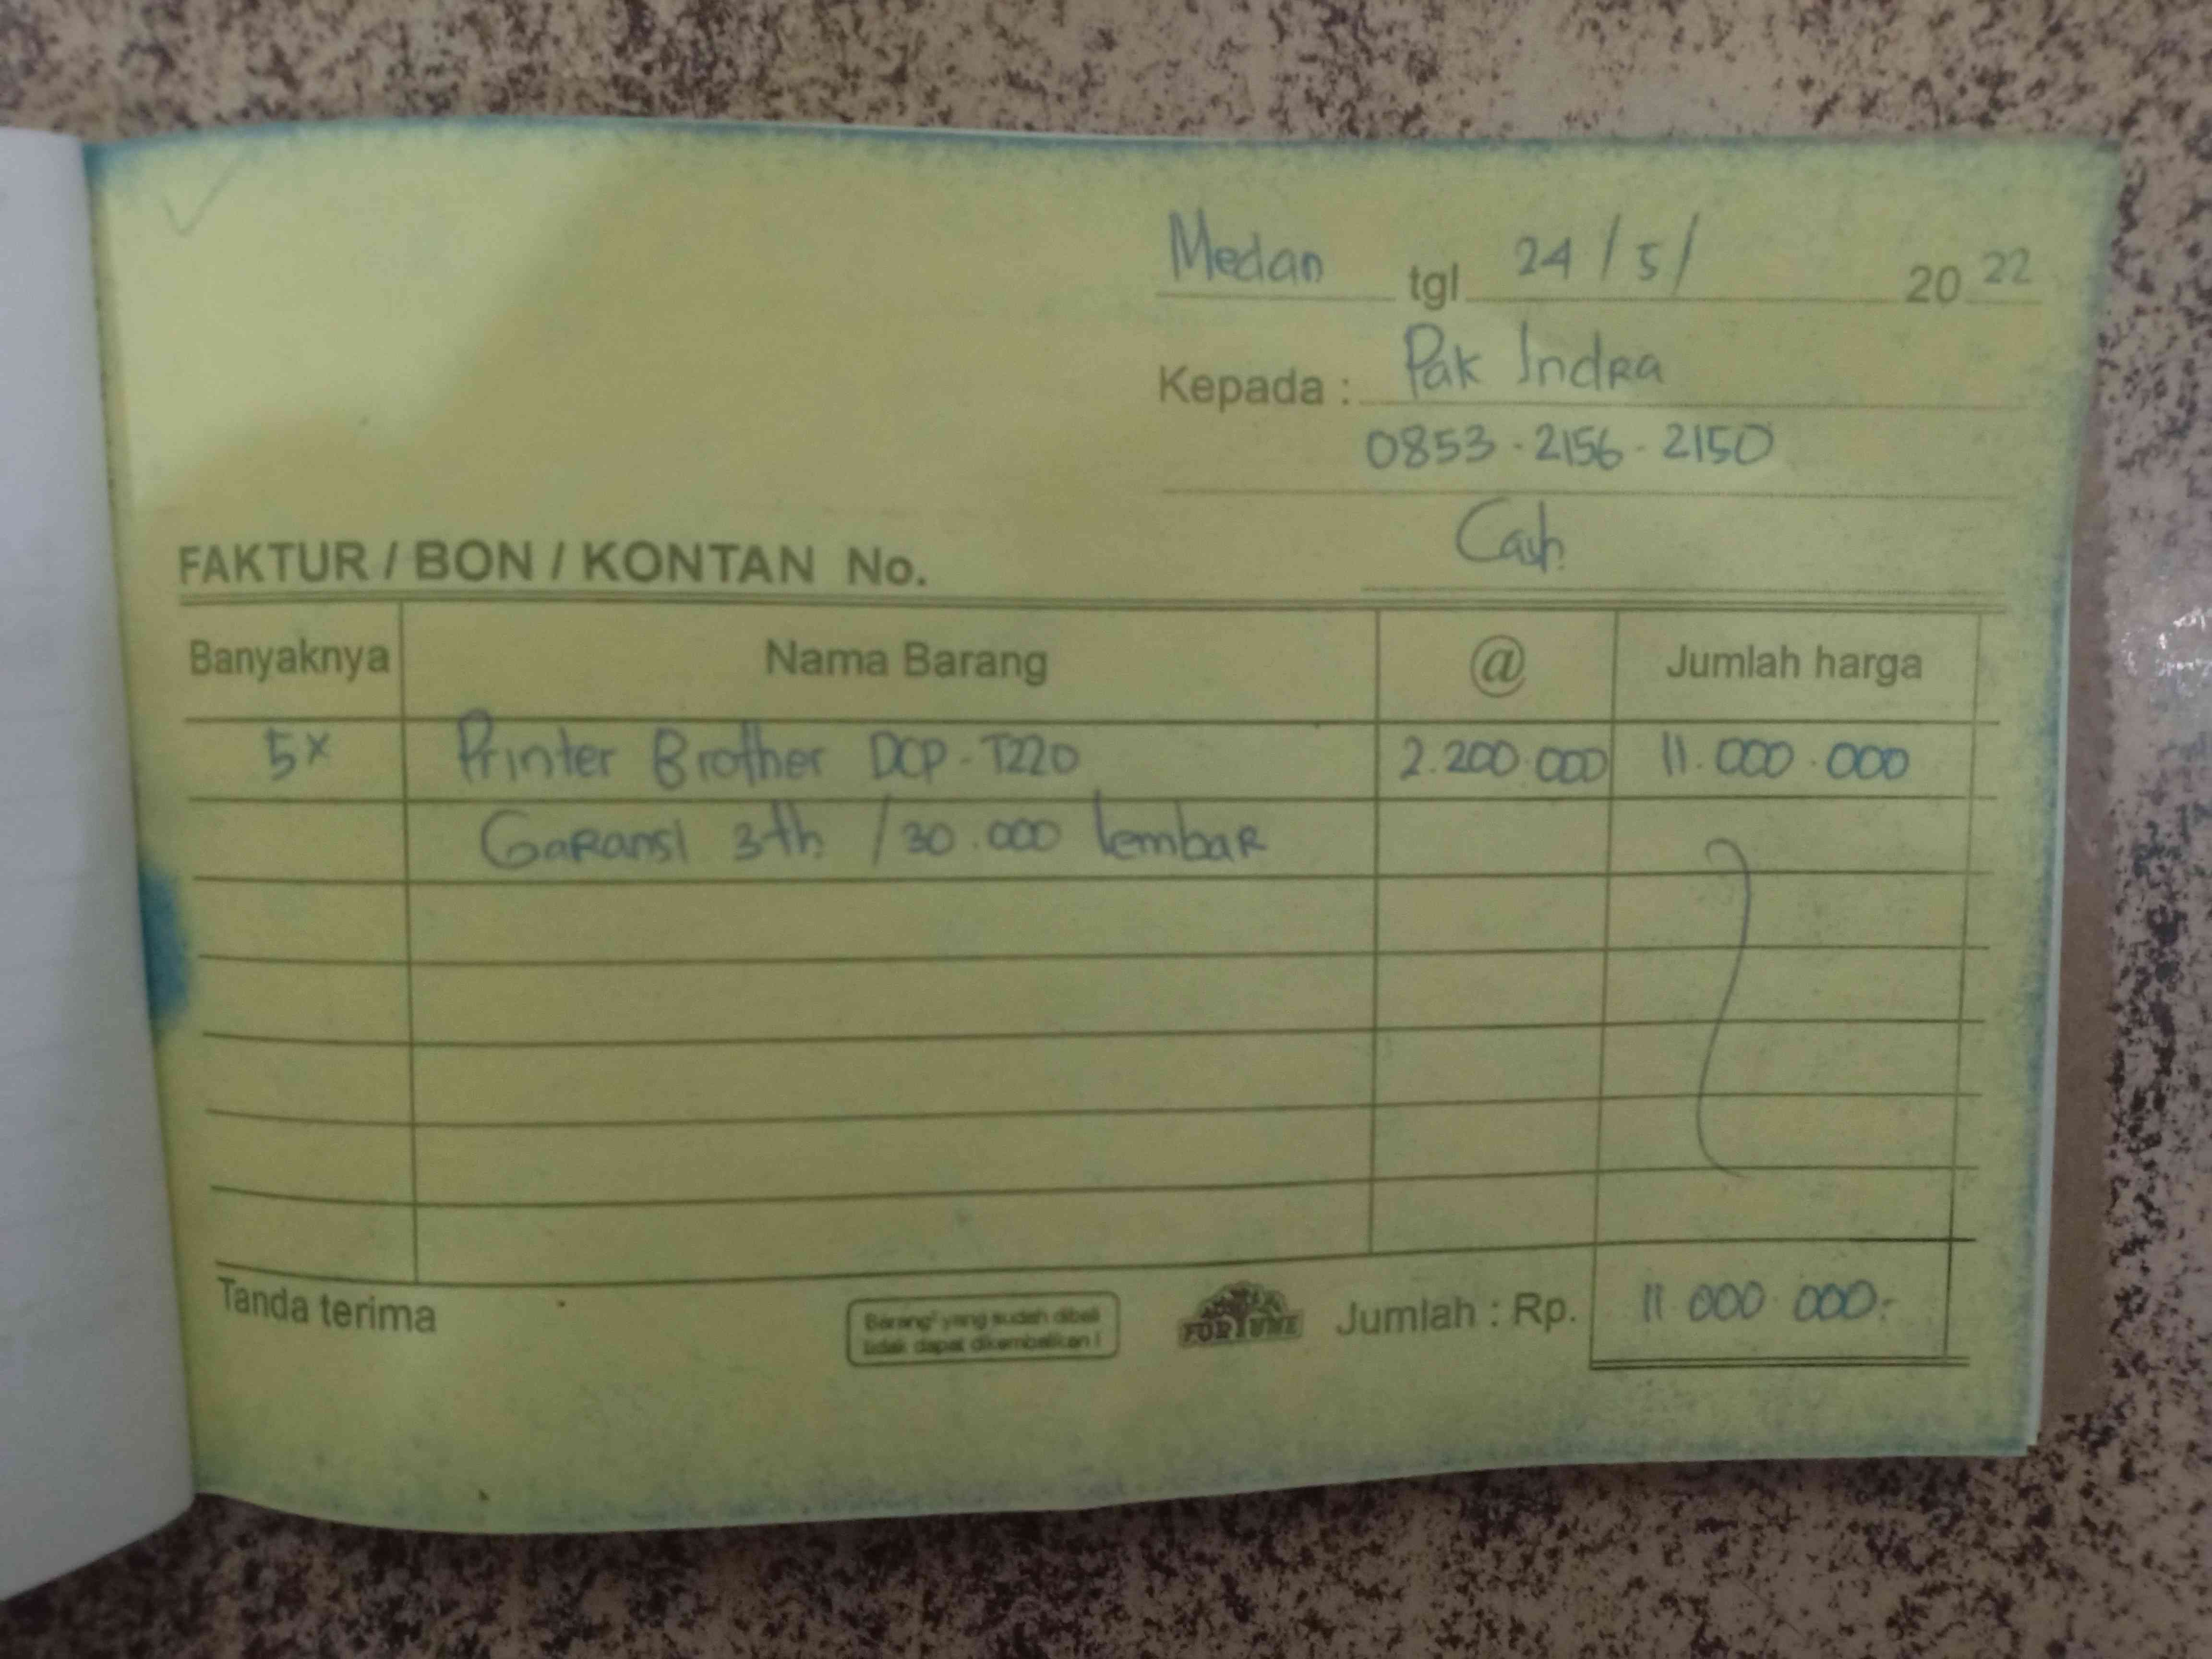 Medan tgl 24 / 5 / 20 22
Kepada : Pak Indra
0853 - 2156 - 2150
Cash
FAKTUR / BON / KONTAN No.
Banyaknya Nama Barang @ Jumlah harga
5x Printer Brother DCP - T220 2.200.000 11.000.000
Garansi 3th / 30.000 lembar
Tanda terima
Barang² yang sudah dibeli
tidak dapat dikembalikan !
FORTUNE
Jumlah : Rp. 11 000 000.-